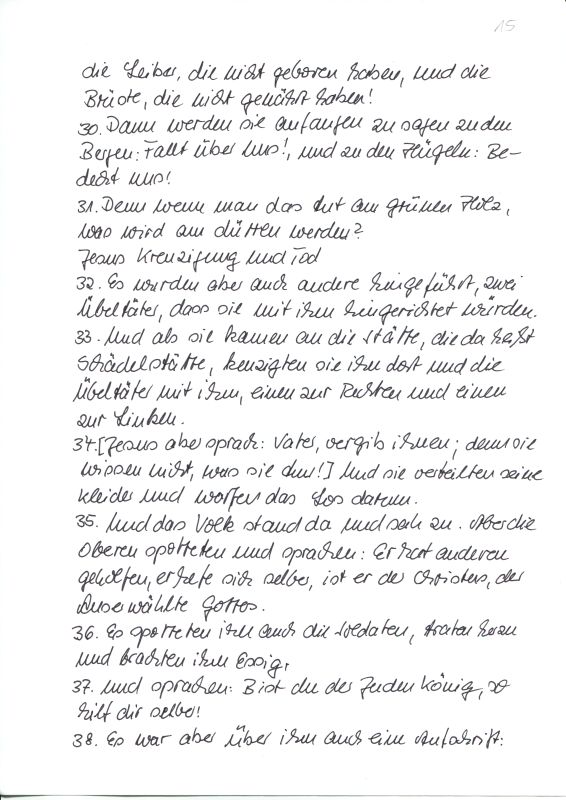 15
die Leiber, die nicht geboren haben, und die
Brüste, die nicht genährt haben!
30. Dann werden sie anfangen zu sagen zu den
Bergen: Fallt über uns!, und zu den Hügeln: Be-
deckt uns!
31. Denn wenn man das tut am grünen Holz,
was wird am dürren werden?
Jesus Kreuzigung und Tod
32. Es wurden aber auch andere hingeführt, zwei
Übeltäter, dass sie mit ihm hingerichtet würden.
33. Und als sie kamen an die Stätte, die da heißt
Schädelstätte, kreuzigten sie ihn dort und die
Übeltäter mit ihm, einen zur Rechten und einen
zur Linken.
34. [Jesus aber sprach: Vater, vergib ihnen; denn sie
wissen nicht, was sie tun!] Und sie verteilten seine
Kleider und warfen das Los darum.
35. Und das Volk stand da und sah zu. Aber die
Oberen spotteten und sprachen: Er hat anderen
geholfen, er helfe sich selber, ist er der Christus, der
Auserwählte Gottes.
36. Es spotteten ihn auch die Soldaten, traten heran
und brachten ihm Essig,
37. und sprachen: Bist du der Juden König, so
hilf dir selber!
38. Es war aber über ihm auch eine Aufschrift: